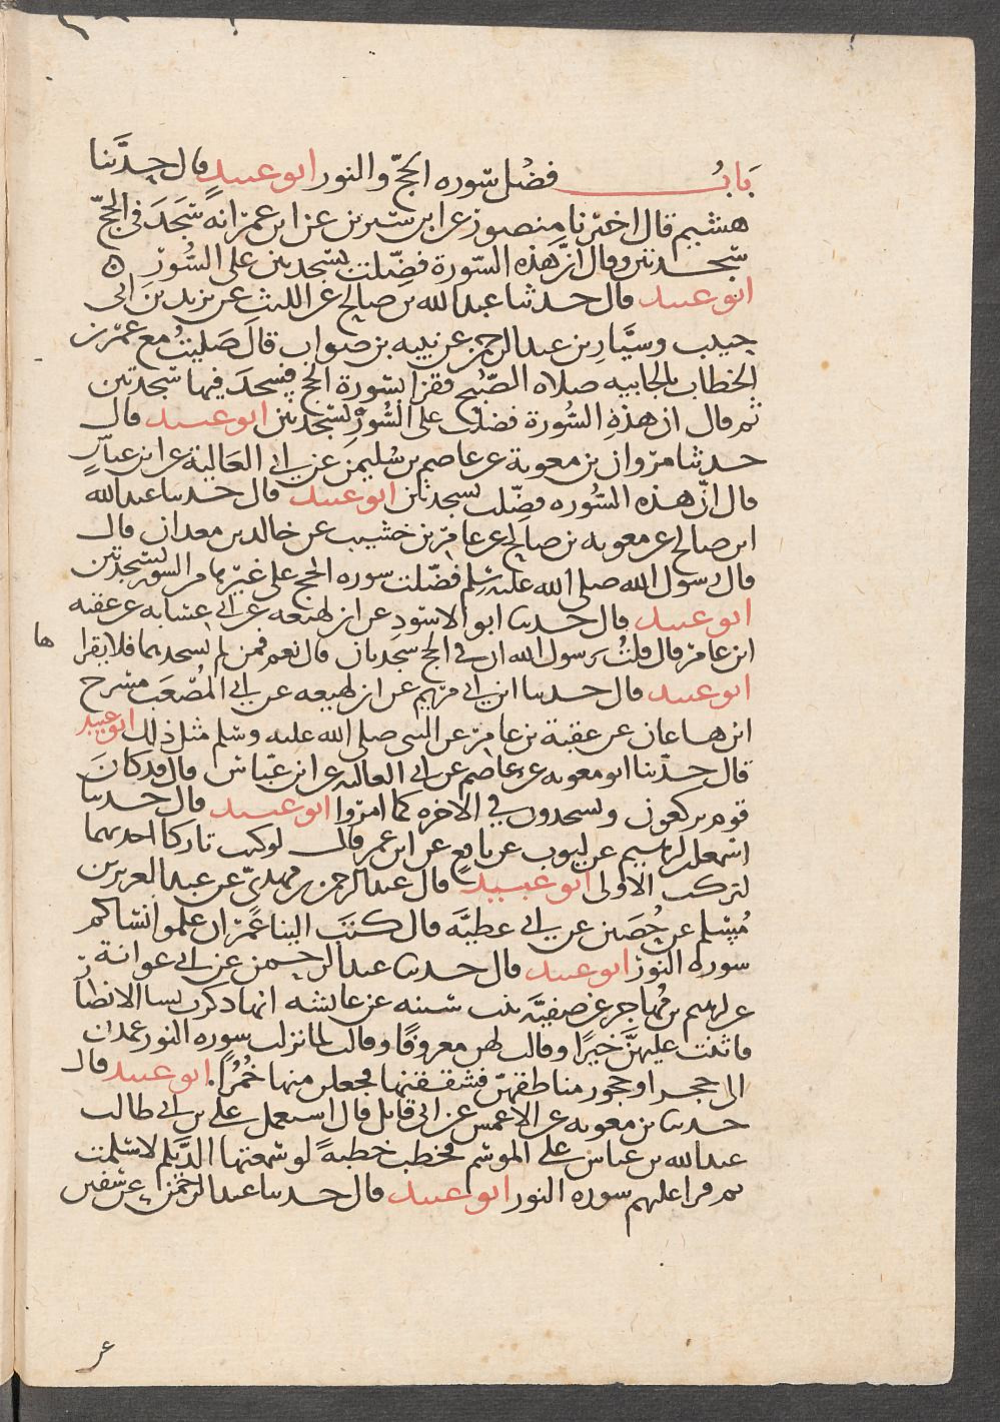 بَابُ فضْل سوره الحجّ والنور ابو عبيد قال حدَّثنا
هشيم قال اخبرنا منصور عن ابن سيرين عن ابن عمر انه سَجَدَ في الحجّ
سجدتين وقال انَّ هذه السّورة فضِّلت بسجدتين على السُّوَر ن
ابو عبيد قال حدثنا عبد الله بن صالح عن الليث عن يزيد بن ابي
حبيب وسيَّارِ بن عبد الرحمن عن نبيه بن صواب قالَ صَليتُ مع عمر بن
الخطاب بالجابيه صلاه الصُّبح فقرا بسُورة الحج فسجدَ فيها سجدتين
ثم قال ان هذهِ السُّورة فضلت على السُّوَر بسَجدتين ابو عبيد قال
حدثنا مروان بن معوية عن عاصم بن سُليمن عن ابي العَالية عن ابن عباسٍ
قال انّ هذه السُّوره فضِّلت بسجدتين ابو عبيد قال حدثنا عبد الله
ابن صالح عن معويه بن صالح عن عامر بن خشيب عن خالد بن معدان قال
قال رسول الله صلى الله عليه وسلم فضّلت سوره الحج على غيرها من السور بسَجدتين
ابو عبيد قال حدثنا ابو الاسود عن ابن لهيعه عن ابي عشابه عن عقبه
ابن عامر قال قلتُ يرسول الله ان في الحج سجدتان قال نعم فمن لم يسجدهما فلا يقرا
ها
ابو عبيد قال حدثنا ابن ابي مريم عن ابن لهيعه عن ابي المُصْعَب مشرح
ابن هاعان عن عقبة بن عامر عن النبي صلى الله عليه وسلم مثل ذلك ابو عبيد
قال حدّثنا ابو معويه عن عاصم عن ابي العاليه عن ابن عبّاس قال قد كانَ
قوم يركعون ويسجدون في الاخره كما امروا ابو عبيد قال حدثنا
اسمعيل بن ابرهيم عن ايوب عن نافع عن ابن عمر قال لو كنت تاركا احديهما
لتركت الاولى ابو عبيد قال عبد الرحمن بن مهديّ عن عبد العزيز بن
مُسلم عن حُصَين عن ابي عطيَّه قال كتبَ الينا عُمرُ ان علموا نساكم
سوره النور ابو عبيد قال حدثنا عبد الرحمن عن ابي عوانة
عن ابرهيم بن مُهاجر عن صفيَّه بنت شيبه عن عايشه انها ذكرت نسا الانصار
فاثنت عليهنَّ خيرًا وقالت لهن معروفًا وقالت لما نزلت سوره النور عمدن
الى حجز او حجوز مناطقهنّ فشققنها فجعلن منها خُمُرًا. ابو عبيد قال
حدثنا بن معويه عن الاعمش عن ابي قايل قال استعمل علي بن ابي طالب
عبد الله بن عباس على الموسم فخطب خطبةً لو سَمعتها الدَّيلم لاسلمت
ثم قرا عليهم سوره النور ابو عبيد قال حدثنا عبد الرحمن عن سفين
عن